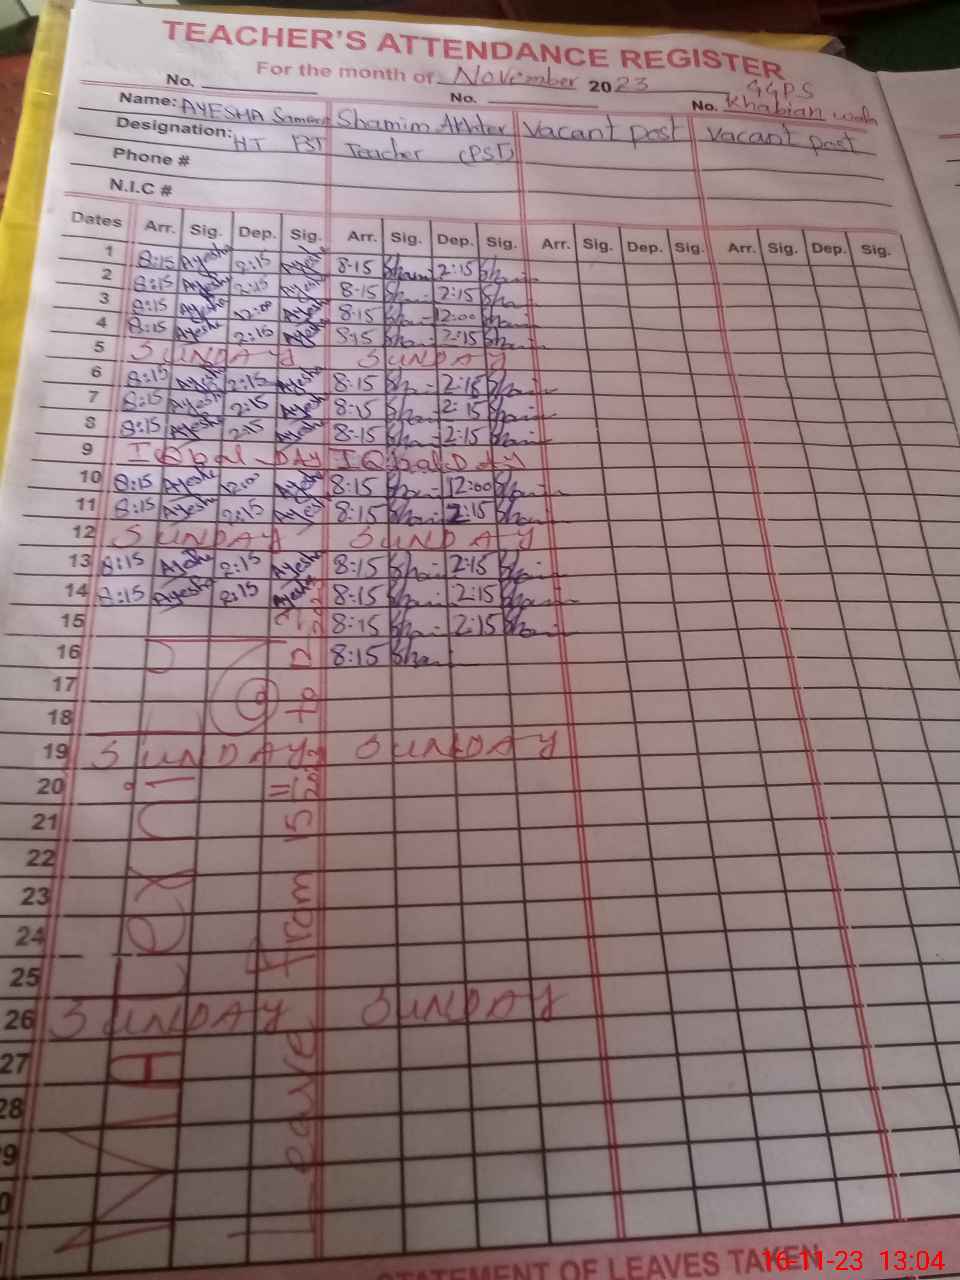 TEACHER'S ATTENDANCE REGISTER
For the month of November 2023
GGPS
No. No. No. Khabian wala
Name: AYESHA Shamim Akhter Vacant post Vacant post
Designation: HT Teacher (PST)
Phone #
N.I.C #
Dates Arr. Sig. Dep. Sig. Arr. Sig. Dep. Sig. Arr. Sig. Dep. Sig. Arr. Sig. Dep. Sig.
1 8:15 Ayesha 2:15 Ayesha 8-15 Sham 2:15 Sham
2 8:15 Ayesha 2:15 Ayesha 8-15 Sha 2:15 Sha
3 8:15 Ayesha 12:00 Ayesha 8-15 Sha 12:00 Sha
4 8:15 Ayesha 2:15 Ayesha 8:15 Sha 2:15 Sha
5 SUNDAY SUNDAY
6 8:15 Ayesha 2:15 Ayesha 8-15 Sha 2:15 Sha
7 8:15 Ayesha 2:15 Ayesha 8-15 Sha 2:15 Sha
8 8:15 Ayesha 2:15 Ayesha 8-15 Sha 2:15 Sha
9 IQbal DAY IQbal DAY
10 8:15 Ayesha 12:00 Ayesha 8-15 Sha 12:00 Sha
11 8:15 Ayesha 2:15 Ayesha 8-15 Sha 2:15 Sha
12 SUNDAY SUNDAY
13 8:15 Ayesha 2:15 Ayesha 8-15 Sha 2:15 Sha
14 8:15 Ayesha 2:15 Ayesha 8-15 Sha 2:15 Sha
15 8-15 Sha 2:15 Sha
16 8:15 Sha
17
18
19 SUNDAY SUNDAY
20
21
22
23
24
25
26 SUNDAY SUNDAY
27
28
9
0
Leave from 15 to
STATEMENT OF LEAVES TAKEN
16-11-23 13:04